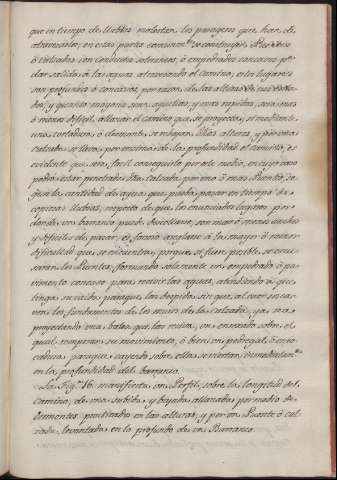 que en tiempo de lluvias molestan los parages que han de
atravesarlo; en esta parte comunm.te se construyen Puentes
ó calzadas con conductos soterraneos, ó empedrados concavos p.a
dar salida á las aguas atravesando el camino, en los lugares
son profundos ó concavos, por razon de las alturas de sus la
dos, y quanto mayores sean aquellas, y mas rapidas, será mas
ó menos dificil, allanar el camino que se proyecta, si mediante
una cortadura, ó desmonte, se rebajan dichas alturas, y por una
calzada se lleva por encima de la profundidad el camino, es
evidente que será facil conseguirlo por este medio, en cuyo caso
podrá estar penetrada dha calzada por uno ó mas Puentes, se
gun la cantidad de agua que pueda pasar en tiempo de
copiosas lluvias, respecto de que los enunciados lugares por
donde un barranco puede descollarse, son mas ó menos anchos
y dificiles de pasar; es forzoso arreglarse á la mayor ó menor
dificultad que se encuentra, porque si fuere posible, se escu
saran los Puentes, formando solamente un empedrado ó pa
vimento concavo para recivir las aguas, atendiendo á que
tenga su caida paraque las despida sin que al correr soca
ven los fundamentos de los muros de la calzada, ya sea
proyectando una balsa que las reciva, en enrexado sobre el
qual rompieran su movimiento, ó bien un pedregal, ó enro
cadura paraque, cayendo sobre ella se viertan inmediatam.te
en la profundidad del barranco.
La Fig.a 16 manifiesta en Perfil, sobre la longitud del
Camino, de una subida, y bajada allanada por medio de
desmontes practicados en las alturas, y por un Puente ó cal
zada, levantada en lo profundo de un Barranco.